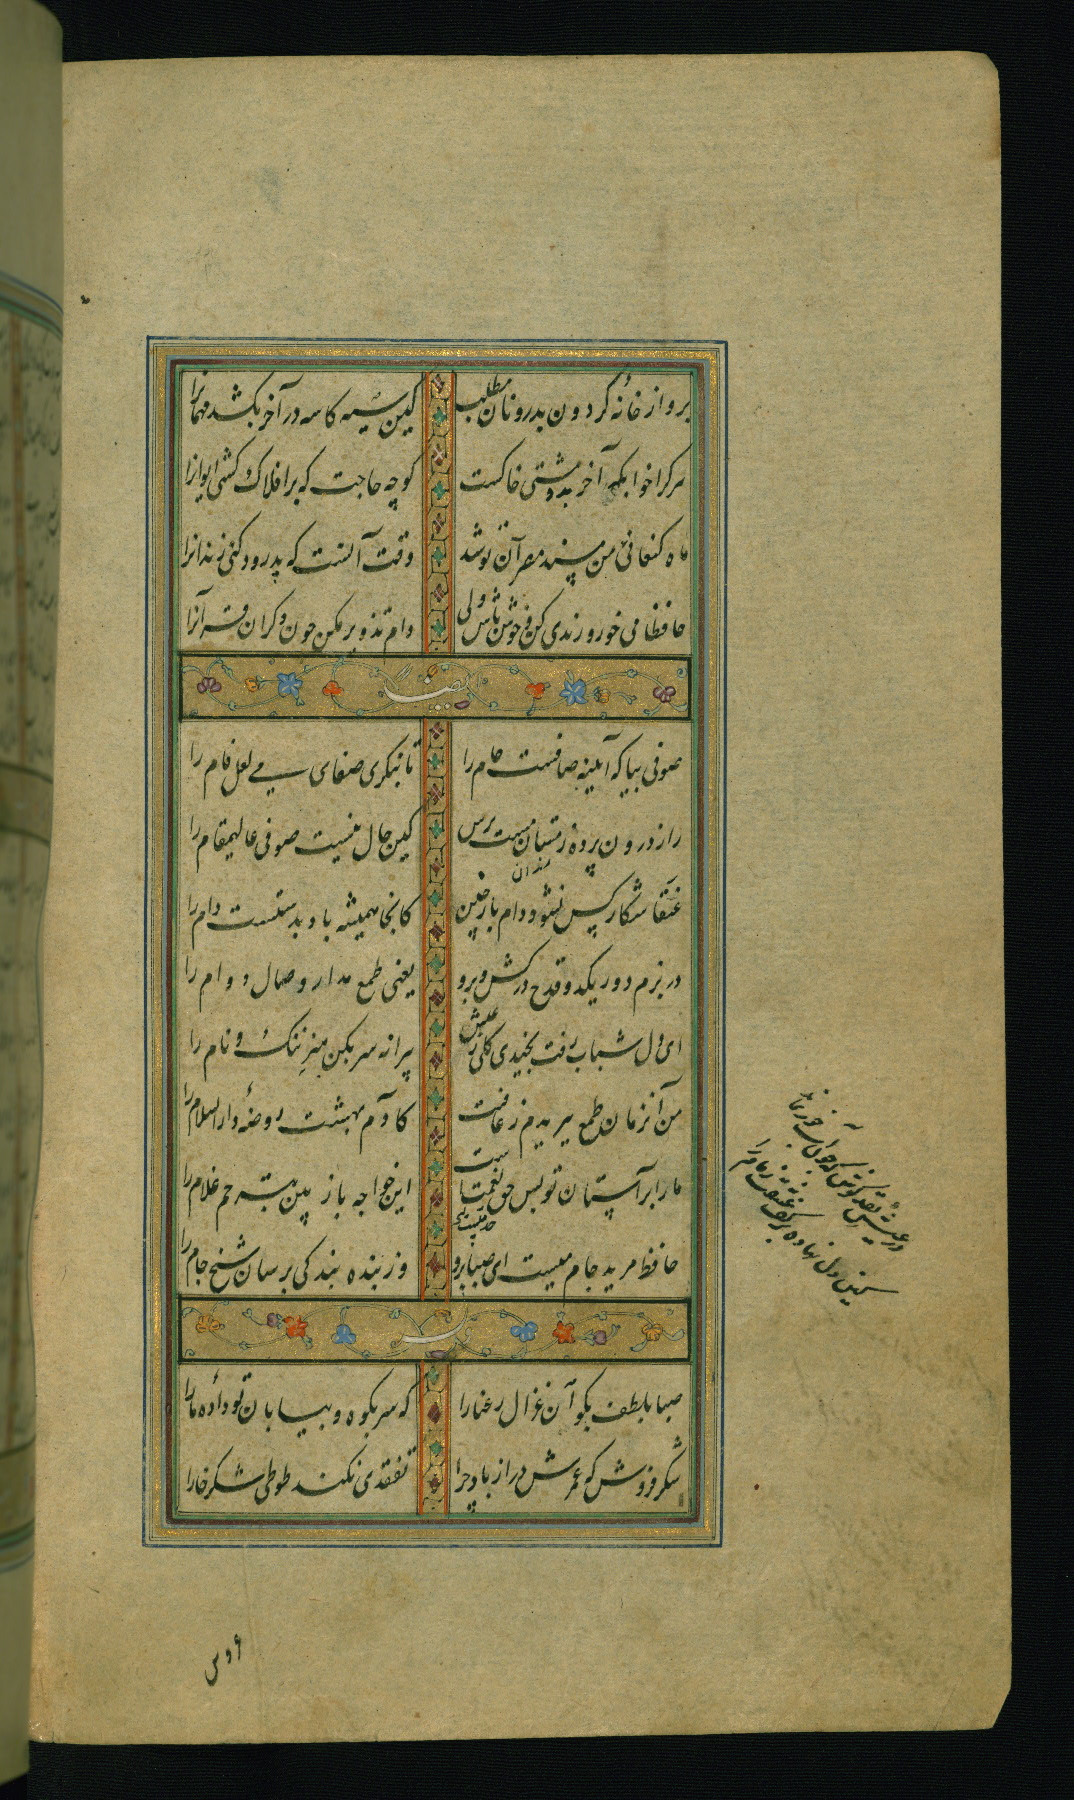 برو از خانهٔ گردون بدر و نان مطلب کین سیه کاسه در آخر بکشد مهمانرا
هر کرا خوابگه آخر بدو مشتی خاکست گو چه حاجت که بر افلاک کشی ایوانرا
ماه کنعانی من مسند مصر آن تو شد وقت آنست که بدرود کنی زندانرا
حافظا می خور و رندی کن و خوش باش ولی دام تزویر مکن چون دگران قرآنرا
ایضا
صوفی بیا که آینه صافیست جام را تا بنگری صفای می لعل فام را
راز درون پرده ز رندان مست پرس کین حال نیست صوفی عالیمقام را
عنقا شکار کس نشود دام باز چین کانجا همیشه باد بدستست دام را
در بزم دور یکدو قدح درکش و برو یعنی طمع مدار وصال دوام را
ای دل شباب رفت نچیدی گلی ز عیش پیرانه سر بکن هنر ننگ و نام را
من آنزمان طمع ببریدم ز عافیت کادم بهشت روضهٔ دارالسلام را
ما را بر آستان تو بس حق نعمتست ای خواجه باز بین بترحم غلام را
حافظ مرید جام میست ای صبا برو وز بنده بندگی برسان شیخ جام را
صبا بلطف بگو آن غزال رعنا را که سر بکوه و بیابان تو دادهٔ ما را
شکر فروش که عمرش دراز باد چرا تفقدی نکند طوطی شکر خا را
در عیش نقد کوش که چون آبخور نماند